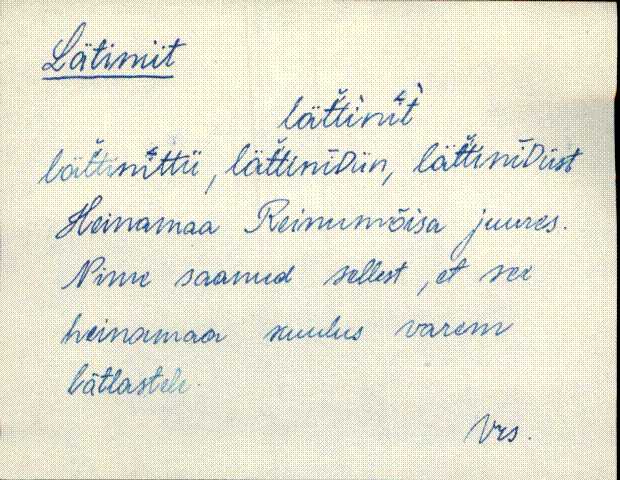 Lätinit
lät̆t̆ìni̬t̀
lät̆t̆ini̬ttü, lät̆t̆inīDün, lät̆t̆inīDüst
Heinamaa Reinumõisa juures.
Nime saanud sellest, et see
heinamaa kuulus varem
lätlastele.
Vrs.